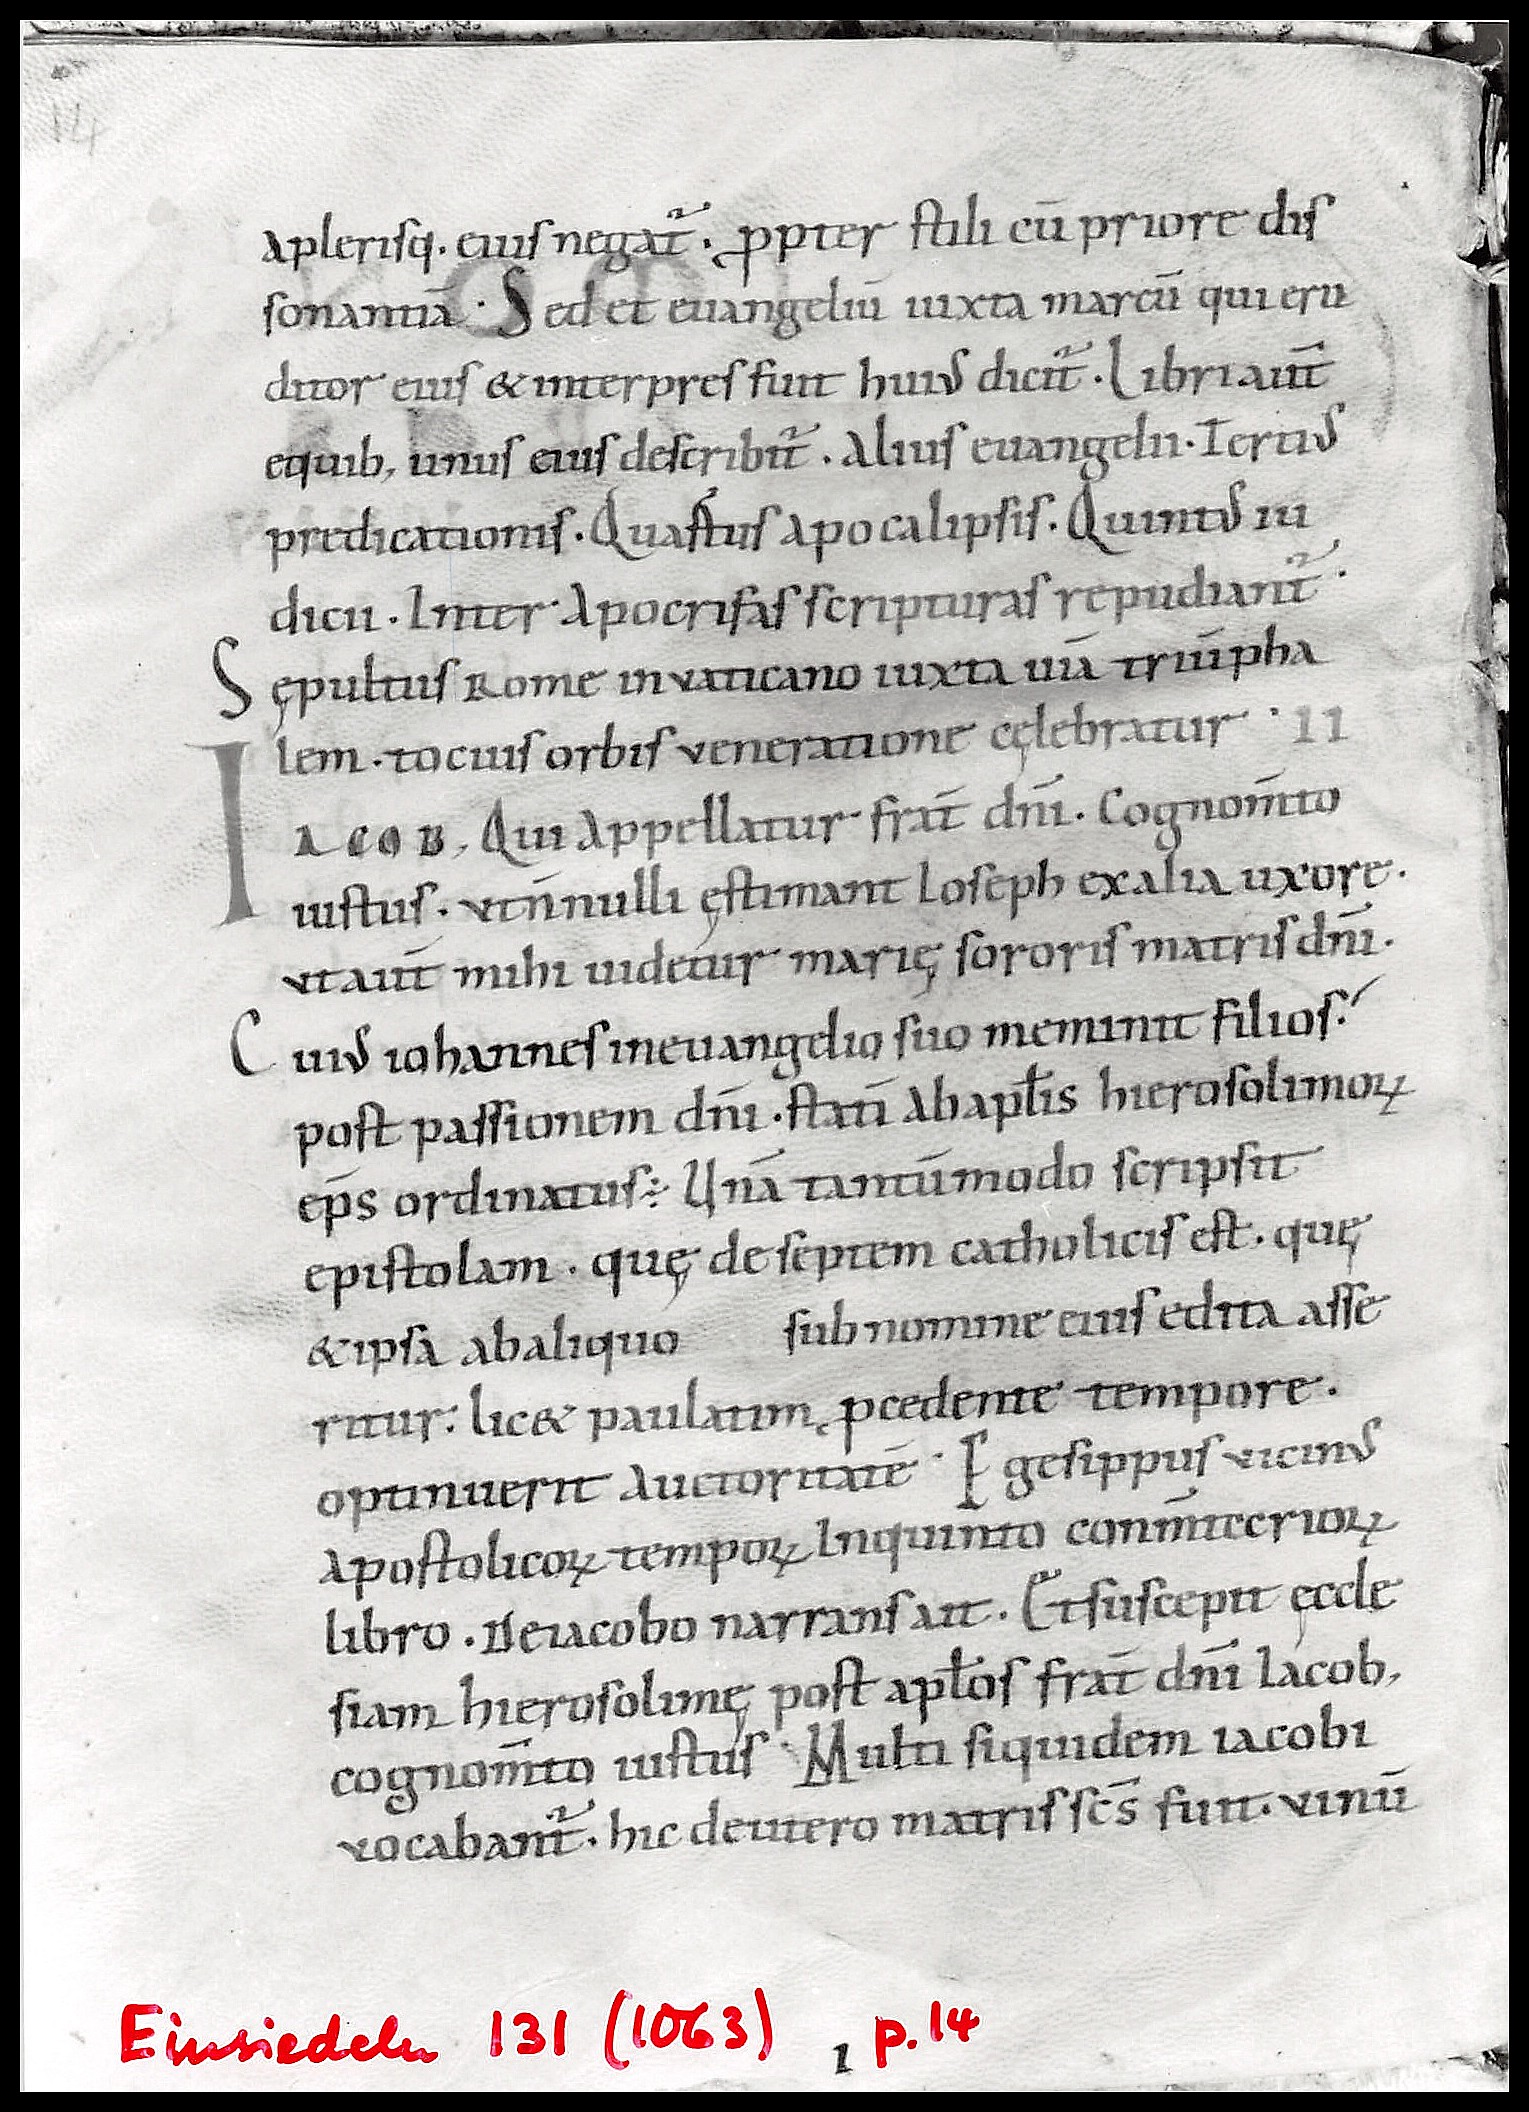 14
aplerisq. eius negat̃. ꝓpter stili cū priore dis
sonantiā. Sed et euangeliū iuxta marcū qui eru
ditor eius & interpres fuit huiꝰ dicit̃. Libri aut̄
equib, unus eius describit̃. Alius euangelii. Tertiꝰ
predicationis. Quartus apocalipsis. Quintꝰ iu
dicii. Inter Apocrifas scripturas repudiant̃.
Sępultus Rome in vaticano iuxta uiā triūpha
lem. tocius orbis veneratione cęlebratur. II
IACOB, Qui Appellatur frat̄ dn̄i. Cognom̄to
iustus. vt n̄nulli ęstimant Ioseph ex alia uxore.
vt aut̄ mihi uidetur marię sororis matris dn̄i.
Cuiꝰ iohannes in euangelio suo meminit filios.
post passionem dn̄i. stati̅ ab apłis hierosolimoꝝ
ep̄s ordinatus. Unā tantūmodo scripsit
epistolam. quę de septem catholicis est. quę
& ipsa ab aliquo sub nomine eius edita asse
ritur. lic& paulatim ꝓcedente tempore.
optinuerit auctoritatē. Egesippus vicinꝰ
Apostolicoꝝ tempoꝝ Inquinto conm̄tcrioꝝ
libro. De iacobo narrans ait. Et suscepit ęccle
siam hierosolimę post apłos frat̄ dn̄i Iacob,
cognom̄to iustus. Multi siquidem iacobi
vocabant̃. hic deutero matris sc̄s fuit. vinū
Einsiedeln 131 (1063) p. 14
1